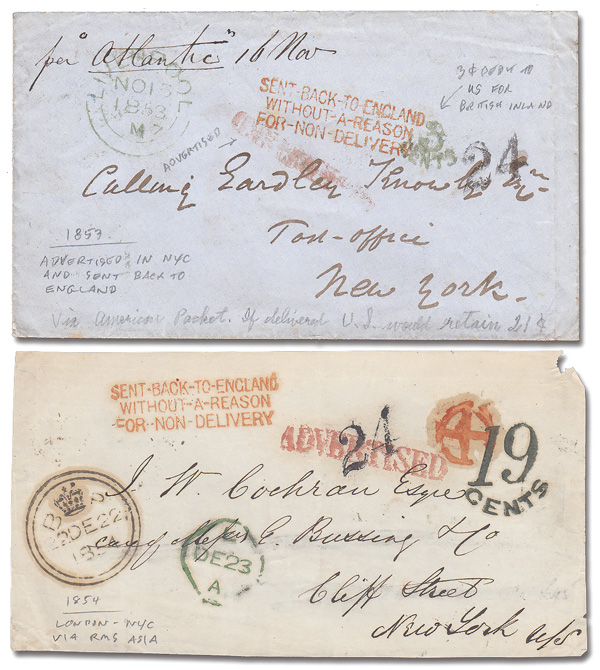 per "Atlantic" 16 Nov
LIVERPOOL
NO 15
1853
M 7
SENT-BACK-TO-ENGLAND
WITHOUT-A-REASON
FOR-NON-DELIVERY
3¢ DEBIT TO
US FOR
BRITISH INLAND
3
CENTS
24
ADVERTISED
Calling Eardley Knowles Esqre
Post-office
New York.
1853
ADVERTISED IN NYC
AND SENT BACK TO
ENGLAND
Via American Packet. If delivered U.S. would retain 21¢
SENT-BACK-TO-ENGLAND
WITHOUT-A-REASON
FOR-NON-DELIVERY
ADVERTISED
24
19
CENTS
J. W. Cochran Esqre
care Messrs E. Bussing & Co
Cliff Street
New York U/S
DE 22
DE 23
A
1854
LONDON - NYC
VIA RMS ASIA